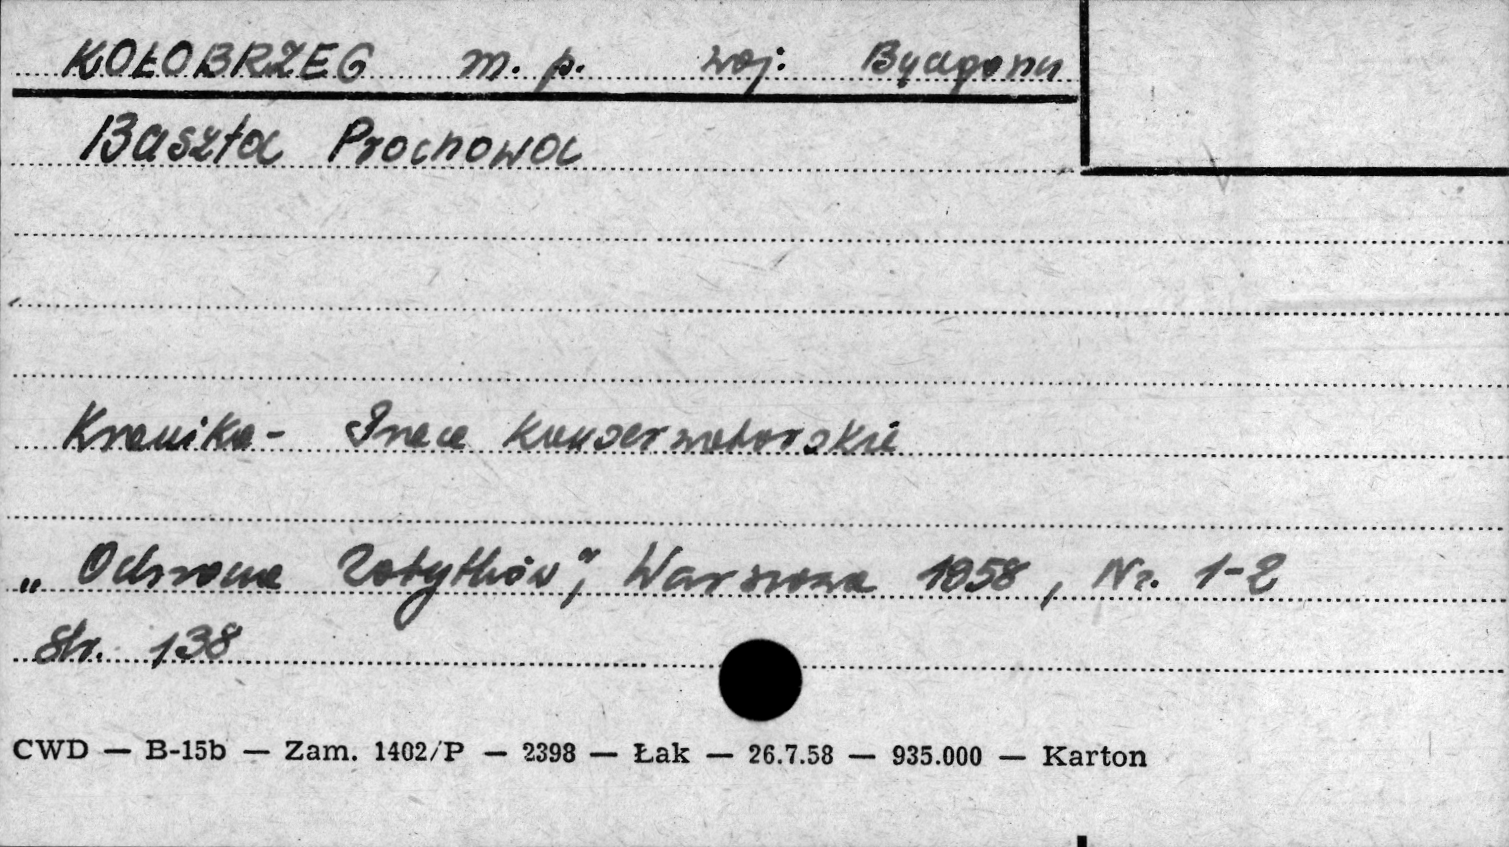 KOŁOBRZEG m. p. woj.
Baszta Prochowa
Kronika - Prace konserwatorskie
„Ochrona Zabytków", Warszawa 1958, Nr. 1-2
Str. 138
CWD — B-15b — Zam. 1402/P — 2398 — Łak — 26.7.58 — 935.000 — Karton